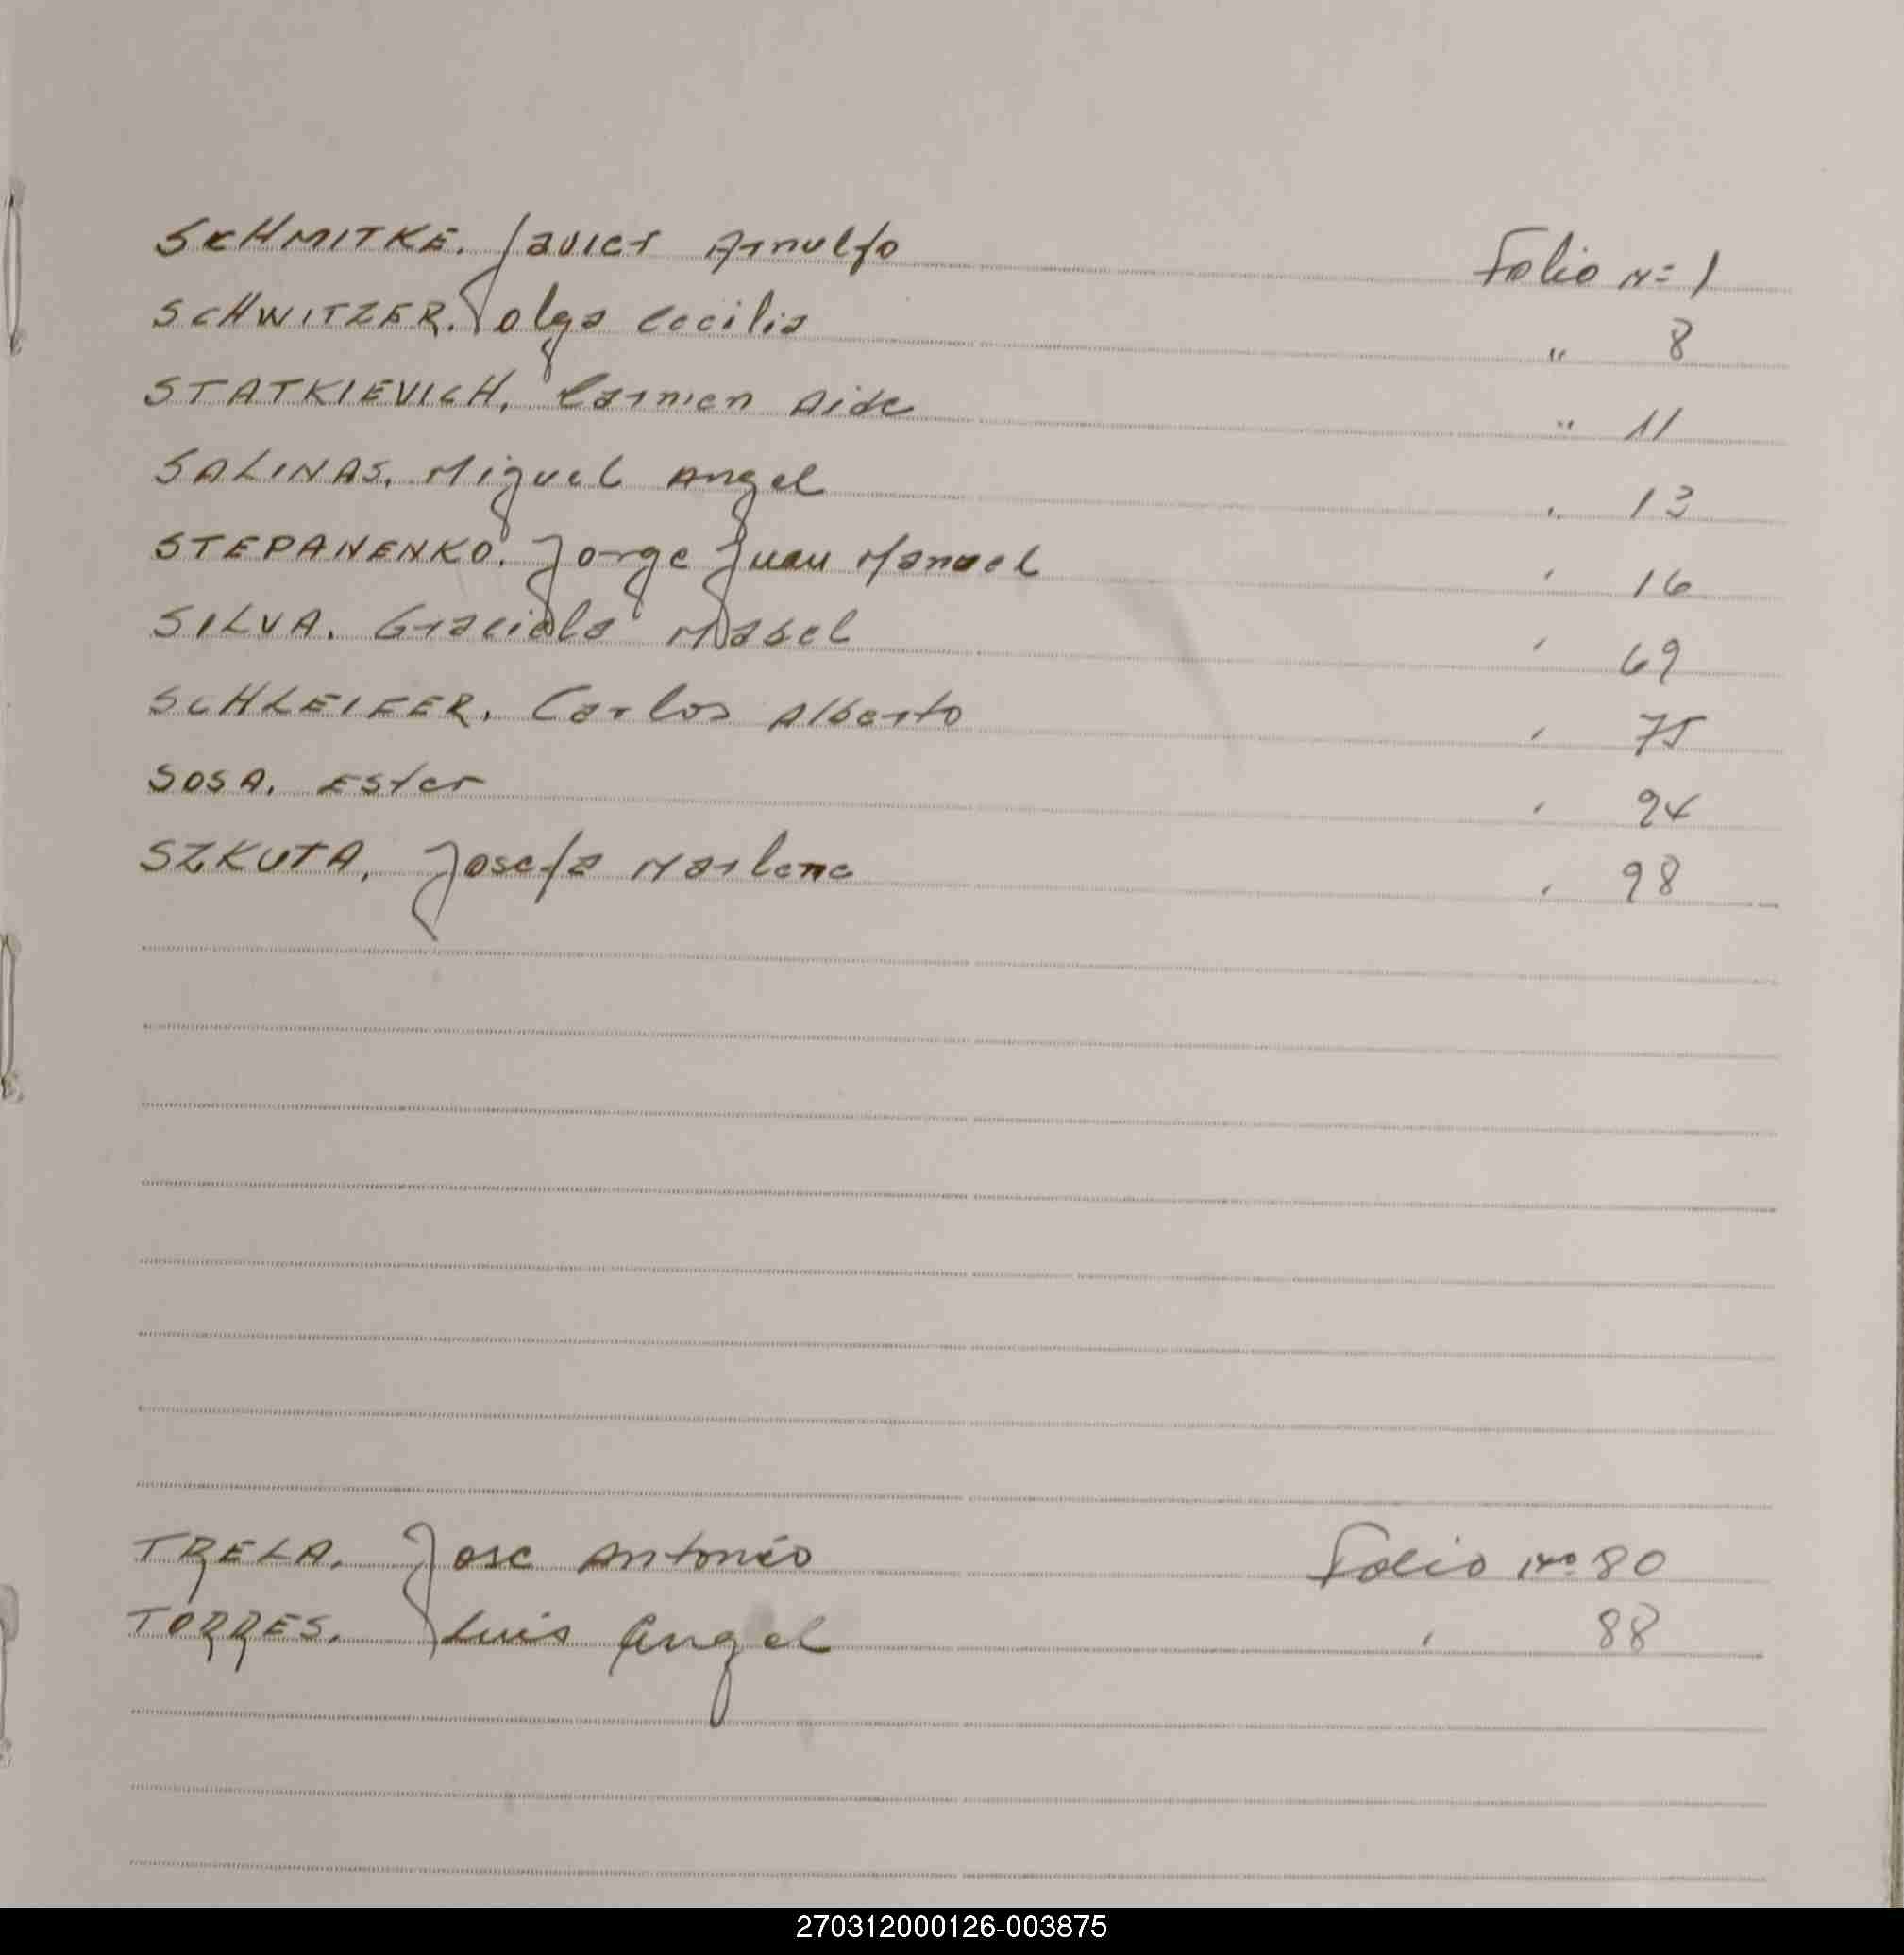 SCHMITKE. Javier Arnulfo Folio Nº 1
SCHWITZER. Olga Cecilia " 8
STATKIEVICH, Carmen Aide " 11
SALINAS. Miguel Angel " 13
STEPANENKO. Jorge Juan Manuel " 16
SILVA. Graciela Mabel " 69
SCHLEIFER. Carlos Alberto " 75
SOSA. Ester " 94
SZKUTA, Josefa Marlene " 98
TRELA. Jose Antonio Folio Nº 80
TORRES. Luis Angel " 88
270312000126-003875